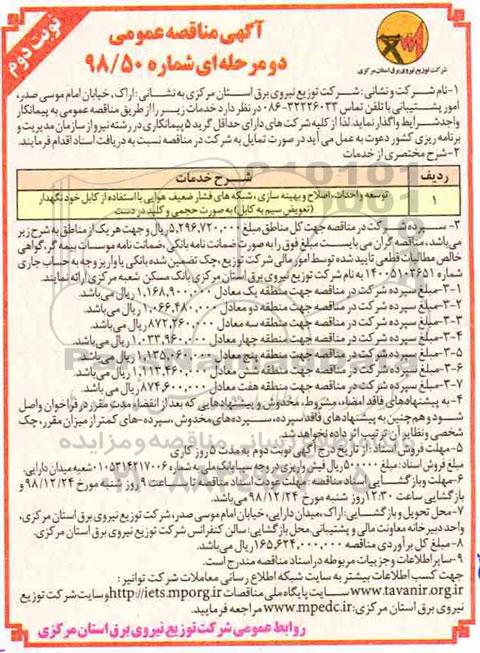 نوبت دوم
آگهی مناقصه عمومی
دو مرحله ای شماره ۹۸/۵۰
شرکت توزیع نیروی برق استان مرکزی
۱-نام شرکت و نشانی: شرکت توزیع نیروی برق استان مرکزی به نشانی: اراک، خیابان امام موسی صدر،
امور پشتیبانی با تلفن تماس ۳۲۲۲۶۰۳۳-۰۸۶ در نظر دارد خدمات زیر را از طریق مناقصه عمومی به پیمانکار
واجد شرایط واگذار نماید. لذا از کلیه شرکت های دارای حداقل گرید ۵ پیمانکاری در رشته نیرو از سازمان مدیریت و
برنامه ریزی کشور دعوت به عمل می آید در صورت تمایل به شرکت در مناقصه نسبت به دریافت اسناد اقدام فرمایند.
۲-شرح مختصری از خدمات
ردیف شرح خدمات
۱ توسعه و احداث، اصلاح و بهینه سازی، شبکه های فشار ضعیف هوایی با استفاده از کابل خود نگهدار
(تعویض سیم به کابل) به صورت حجمی و کلید در دست
۳- سپرده شرکت در مناقصه جهت کل مناطق مبلغ ۵,۲۹۶,۷۲۰,۰۰۰ ریال و جهت هر یک از مناطق به شرح زیر
می باشد، مناقصه گران می بایست مبلغ فوق را به صورت ضمانت نامه بانکی، ضمانت نامه موسسات بیمه گر، گواهی
خالص مطالبات قطعی تایید شده توسط امور مالی شرکت توزیع، چک تضمین شده بانکی یا واریز وجه به حساب جاری
شماره ۱۴۰۰۵۱۰۳۶۵۱ به نام شرکت توزیع نیروی برق استان مرکزی بانک مسکن شعبه مرکزی ارائه نمایند.
۳-۱-مبلغ سپرده شرکت در مناقصه جهت منطقه یک معادل ۱,۱۶۸,۹۰۰,۰۰۰ ریال می باشد.
۳-۲-مبلغ سپرده شرکت در مناقصه جهت منطقه دو معادل ۱,۰۶۶,۴۸۰,۰۰۰ ریال می باشد.
۳-۳-مبلغ سپرده شرکت در مناقصه جهت منطقه سه معادل ۸۷۲,۲۶۰,۰۰۰ ریال می باشد.
۳-۴-مبلغ سپرده شرکت در مناقصه جهت منطقه چهار معادل ۱,۰۳۳,۹۶۰,۰۰۰ ریال می باشد.
۳-۵-مبلغ سپرده شرکت در مناقصه جهت منطقه پنج معادل ۱,۱۳۵,۰۶۰,۰۰۰ ریال می باشد.
۳-۶-مبلغ سپرده شرکت در مناقصه جهت منطقه شش معادل ۱,۱۱۳,۴۶۰,۰۰۰ ریال می باشد.
۳-۷-مبلغ سپرده شرکت در مناقصه جهت منطقه هفت معادل ۸۷۴,۶۰۰,۰۰۰ ریال می باشد.
۴- به پیشنهادهای فاقد امضاء، مشروط، مخدوش و پیشنهادهایی که بعد از انقضاء مدت مقرر در فراخوان واصل
شود و هم چنین به پیشنهادهای فاقد سپرده، سپرده های مخدوش، سپرده های کمتر از میزان مقرر، چک
شخصی و نظایر آن ترتیب اثر داده نخواهد شد.
۵- مهلت فروش اسناد: از تاریخ درج آگهی نوبت دوم به مدت ۵ روز کاری
مبلغ فروش اسناد: مبلغ ۵۰۰,۰۰۰ ریال فیش واریزی در وجه سیبا بانک ملی به شماره ۰۱۰۵۳۱۴۲۱۷۰۰۶ شعبه میدان دارایی.
۶-مهلت و بازگشایی اسناد مناقصه: مهلت عودت اسناد مناقصه تا ساعت ۹ روز شنبه مورخ ۹۸/۱۲/۲۴ و
بازگشایی ساعت ۱۲:۳۰ روز شنبه مورخ ۹۸/۱۲/۲۴ می باشد.
۷-محل تحویل و بازگشایی: اراک، میدان دارایی، خیابان امام موسی صدر، شرکت توزیع نیروی برق استان مرکزی،
واحد دبیرخانه معاونت مالی و پشتیبانی. محل بازگشایی: سالن کنفرانس شرکت توزیع نیروی برق استان مرکزی.
۸-مبلغ کل برآوردی مناقصه ۱۶۵,۶۲۴,۰۰۰,۰۰۰ ریال می باشد.
۹-سایر اطلاعات و جزییات مربوطه در اسناد مناقصه مندرج است.
جهت کسب اطلاعات بیشتر به سایت شبکه اطلاع رسانی معاملات شرکت توانیر:
www.tavanir.org.ir سایت پایگاه ملی مناقصات http://iets.mporg.ir وسایت شرکت توزیع
نیروی برق استان مرکزی: www.mpedc.ir مراجعه فرمایید.
روابط عمومی شرکت توزیع نیروی برق استان مرکزی